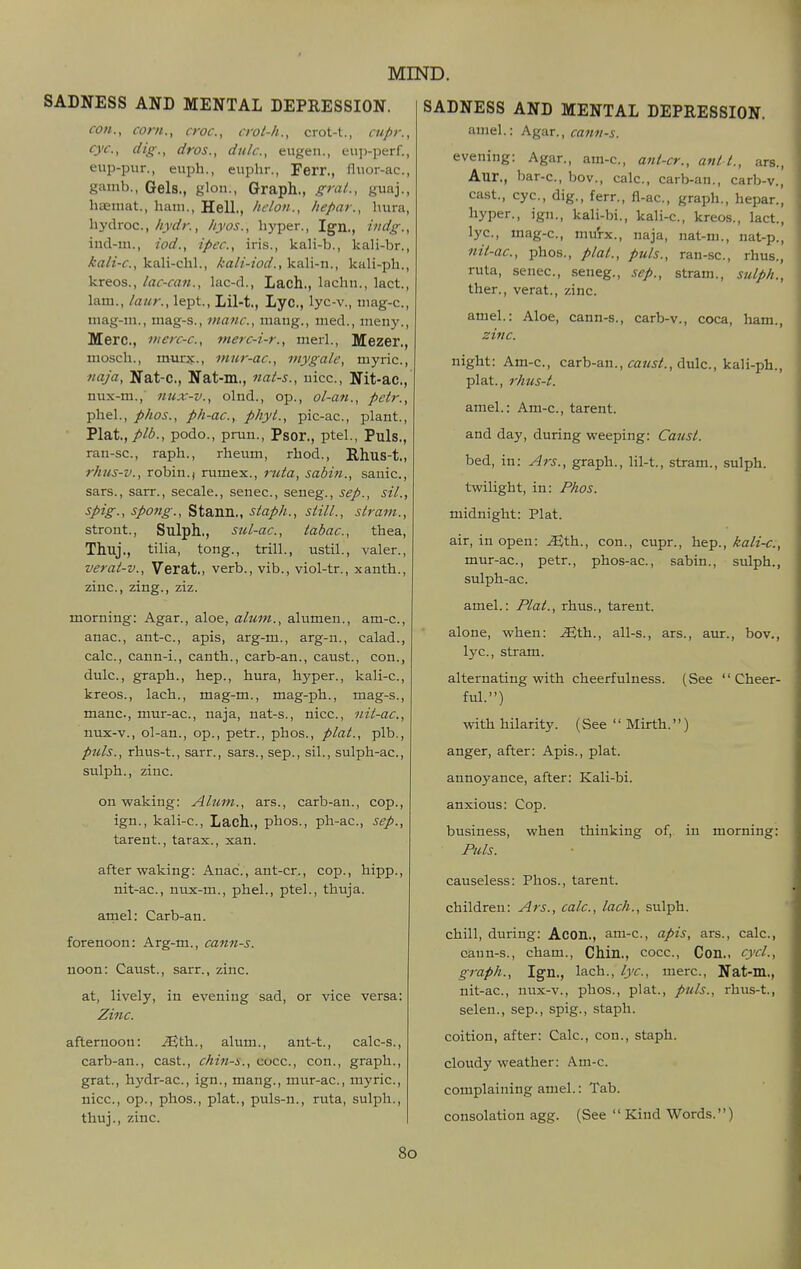 MIND.
SADNESS AND MENTAL DEPRESSION.
con., corn., croc., crot-h., crot-t., cupr.,
cyc., dig., dros., dulc., eugen., eup-perf.,
eup-pur., euph., euphr., Ferr., fluor-ac.,
gamb., Gels., glon., Graph., grat., guaj.,
hæmat., ham., Hell., helon., hepar., hura,
hydroc., hydr., hyos., hyper., Ign., indg.,
ind-m., iod., ipec., iris., kali-b., kali-br.,
kali-c., kali-chl., kali-iod., kali-n., kali-ph.,
kreos., lac-can., lac-d., Lach., lachn., lact.,
lam., laur., lept., Lil-t., Lyc., lyc-v., mag-c.,
mag-m., mag-s., manc., mang., med., meny.,
Merc., merc-c., merc-i-r., merl., Mezer.,
mosch., murx., mur-ac., mygale, myric.,
naja, Nat-c., Nat-m., nat-s., nicc., Nit-ac.,
nux-m., nux-v., olnd., op., ol-an., petr.,
phel., phos., ph-ac., phyt., pic-ac., plant.,
Plat., plb., podo., prun., Psor., ptel., Puls.,
ran-sc., raph., rheum, rhod., Rhus-t.,
rhus-v., robin., rumex., ruta, sabin., sanic.,
sars., sarr., secale., senec., seneg., sep., sil.,
spig., spong., Stann., staph., still., stram.,
stront., Sulph., sul-ac., tabac., thea,
Thuj., tilia, tong., trill., ustil., valer.,
verat-v., Verat., verb., vib., viol-tr., xanth.,
zinc., zing., ziz.
morning: Agar., aloe, alum., alumen., am-c.,
anac., ant-c., apis, arg-m., arg-n., calad.,
calc., cann-i., canth., carb-an., caust., con.,
dulc., graph., hep., hura, hyper., kali-c.,
kreos., lach., mag-m., mag-ph., mag-s.,
manc., mur-ac., naja, nat-s., nicc., nit-ac.,
nux-v., ol-an., op., petr., phos., plat., plb.,
puls., rhus-t., sarr., sars., sep., sil., sulph-ac.,
sulph., zinc.
on waking: Alum., ars., carb-an., cop.,
ign., kali-c., Lach., phos., ph-ac., sep.,
tarent., tarax., xan.
after waking: Anac., ant-cr., cop., hipp.,
nit-ac., nux-m., phel., ptel., thuja.
amel: Carb-an.
forenoon: Arg-m., cann-s.
noon: Caust., sarr., zinc.
at, lively, in evening sad, or vice versa:
Zinc.
afternoon: Æth., alum., ant-t., calc-s.,
carb-an., cast., chin-s., cocc., con., graph.,
grat., hydr-ac., ign., mang., mur-ac., myric.,
nicc., op., phos., plat., puls-n., ruta, sulph.,
thuj., zinc.
SADNESS AND MENTAL DEPRESSION.
amel.: Agar., cann-s.
evening: Agar., am-c., ant-cr., ant t., ars.,
Aur., bar-c., bov., calc., carb-an., carb-v.,
cast., cyc., dig., ferr., fl-ac., graph., hepar.,
hyper., ign., kali-bi., kali-c., kreos., lact.,
lyc., mag-c., murx., naja, nat-m., nat-p.,
nit-ac., phos., plat., puls., ran-sc., rhus.,
ruta, senec., seneg., sep., stram., sulph.,
ther., verat., zinc.
amel.: Aloe, cann-s., carb-v., coca, ham.,
zinc.
night: Am-c., carb-an., caust., dulc., kali-ph.,
plat., rhus-t.
amel.: Am-c., tarent.
and day, during weeping: Caust.
bed, in: Ars., graph., lil-t., stram., sulph.
twilight, in: Phos.
midnight: Plat.
air, in open: Æth., con., cupr., hep., kali-c.,
mur-ac., petr., phos-ac., sabin., sulph.,
sulph-ac.
amel.: Plat., rhus., tarent.
alone, when: Æth., all-s., ars., aur., bov.,
lyc., stram.
alternating with cheerfulness. (See "Cheer-
ful.")
with hilarity. (See "Mirth.")
anger, after: Apis., plat.
annoyance, after: Kali-bi.
anxious: Cop.
business, when thinking of, in morning:
Puls.
causeless: Phos., tarent.
children: Ars., calc., lach., sulph.
chill, during: Acon., am-c., apis, ars., calc.,
cann-s., cham., Chin., cocc., Con., cycl.,
graph., Ign., lach., lyc., merc., Nat-m.,
nit-ac., nux-v., phos., plat., puls., rhus-t.,
selen., sep., spig., staph.
coition, after: Calc., con., staph.
cloudy weather: Am-c.
complaining amel.: Tab.
consolation agg. (See "Kind Words.")
80